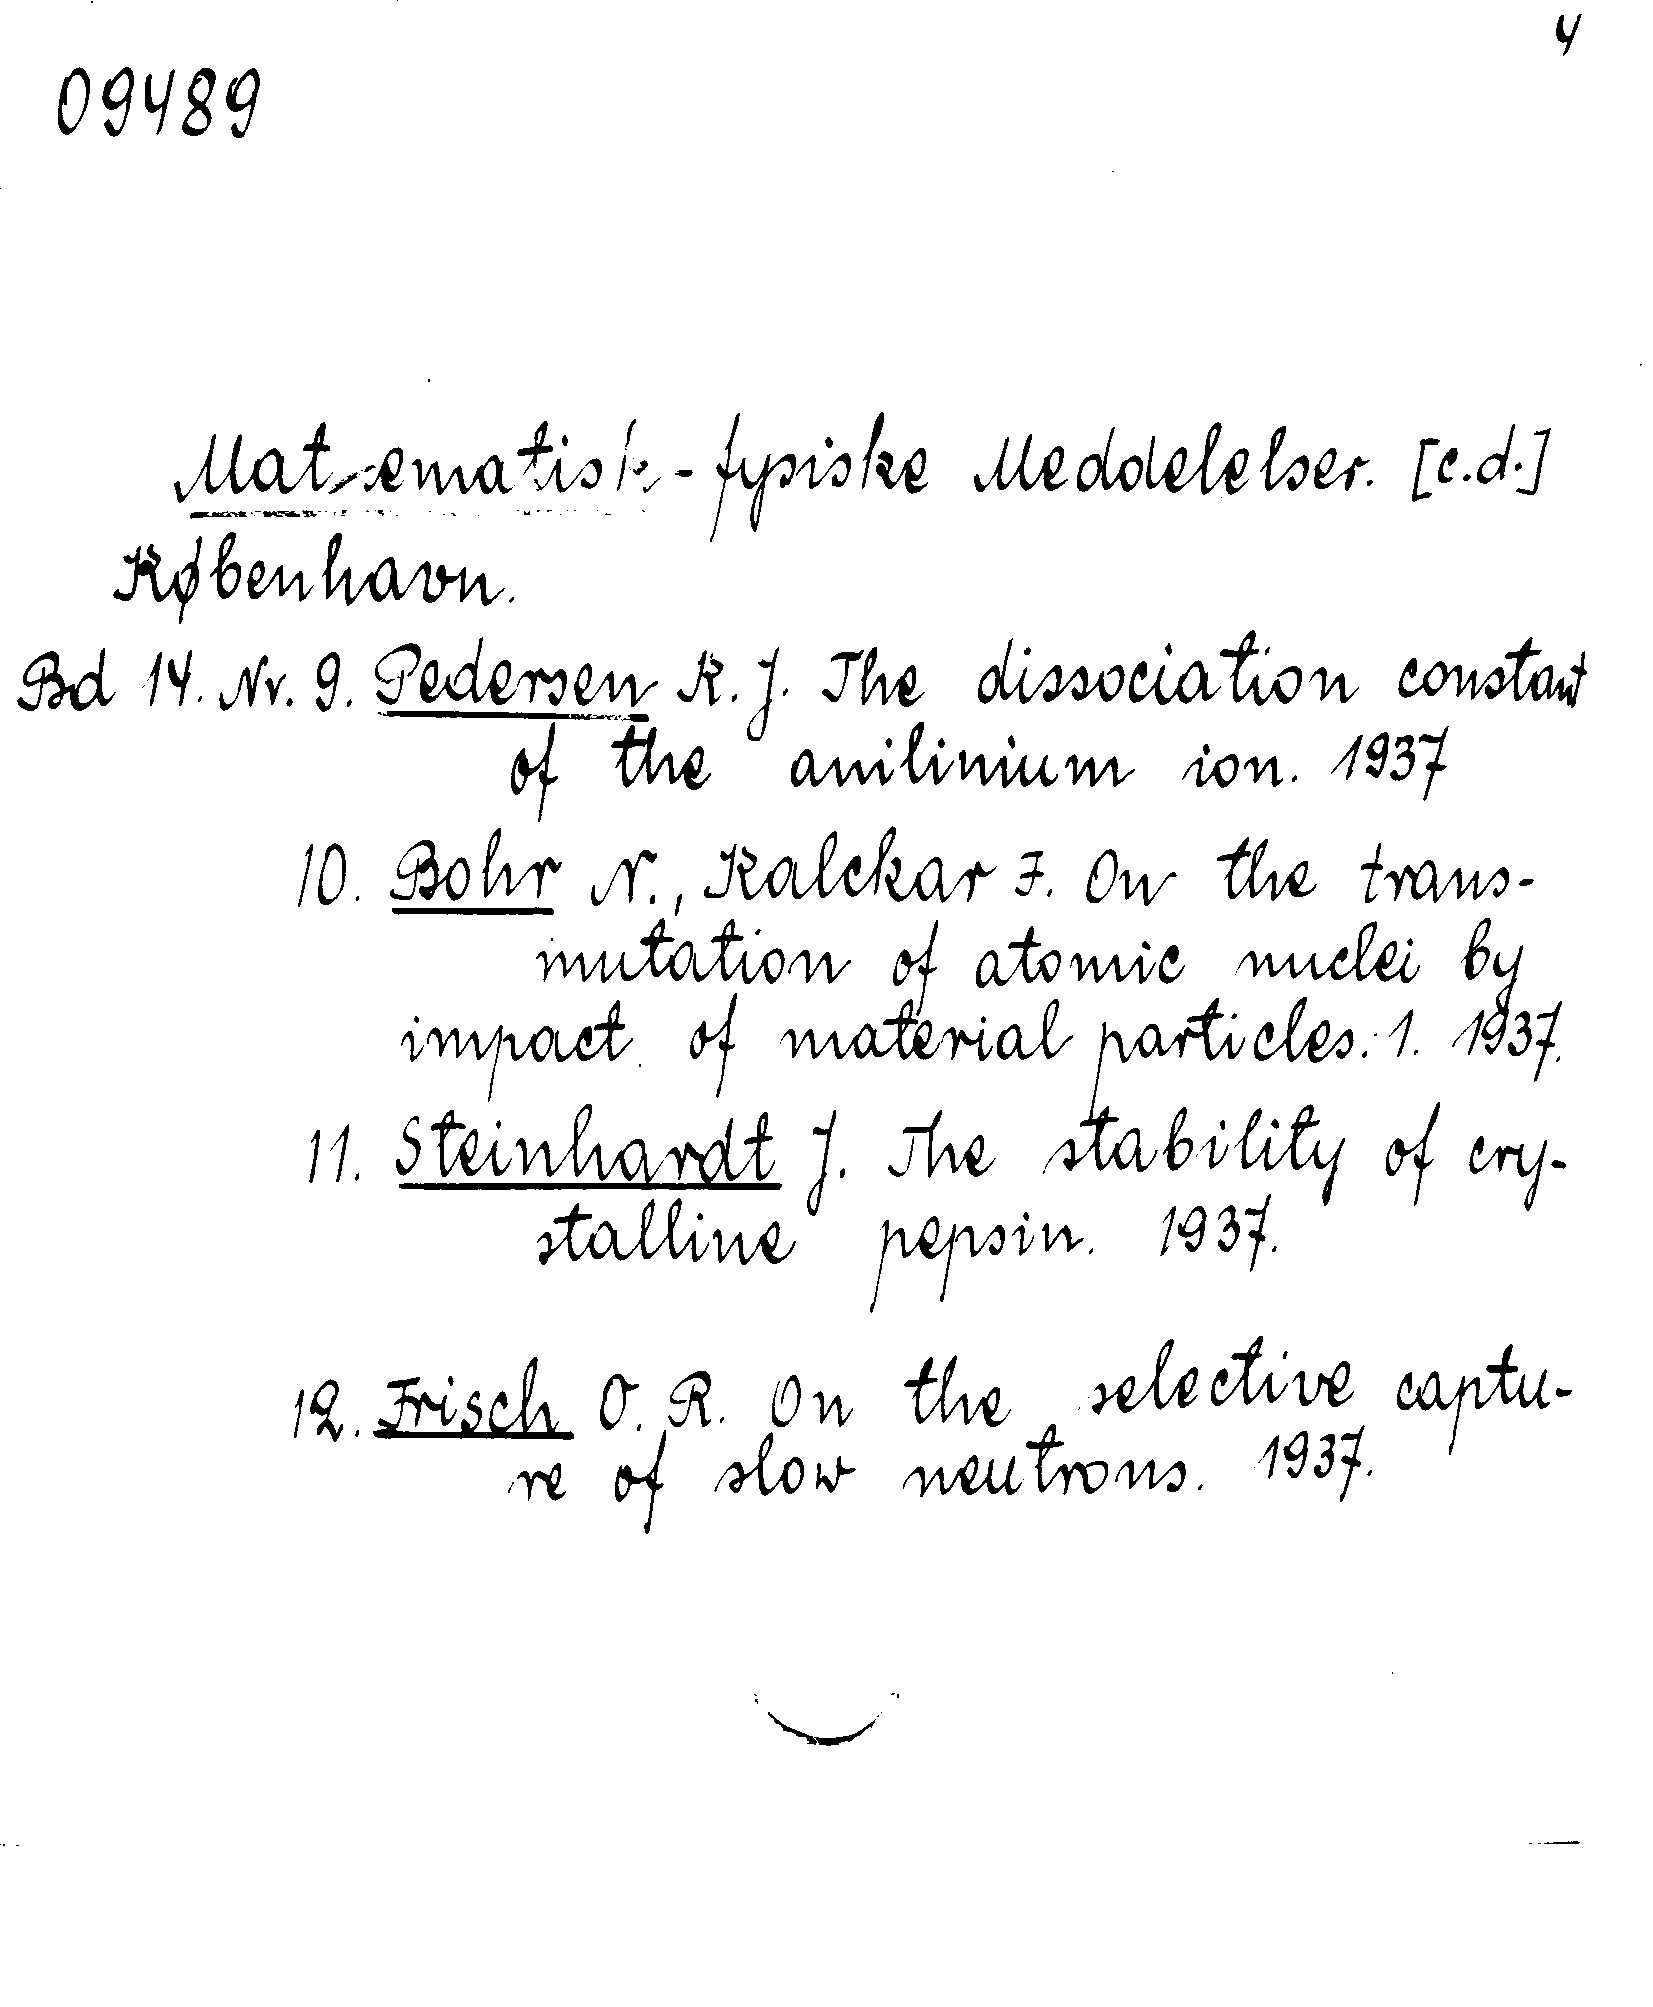 4
09489
Matematisk-fysiske Meddelelser. [c.d.]
København.
Bd 14. Nr. 9. Pedersen K. J. The dissociation constant
of the anilinium ion. 1937
10. Bohr N., Kalckar F. On the trans-
mutation of atomic nuclei by
impact of material particles. 1. 1937.
11. Steinhardt J. The stability of cry-
stalline pepsin. 1937.
12. Frisch O. R. On the selective captu-
re of slow neutrons. 1937.